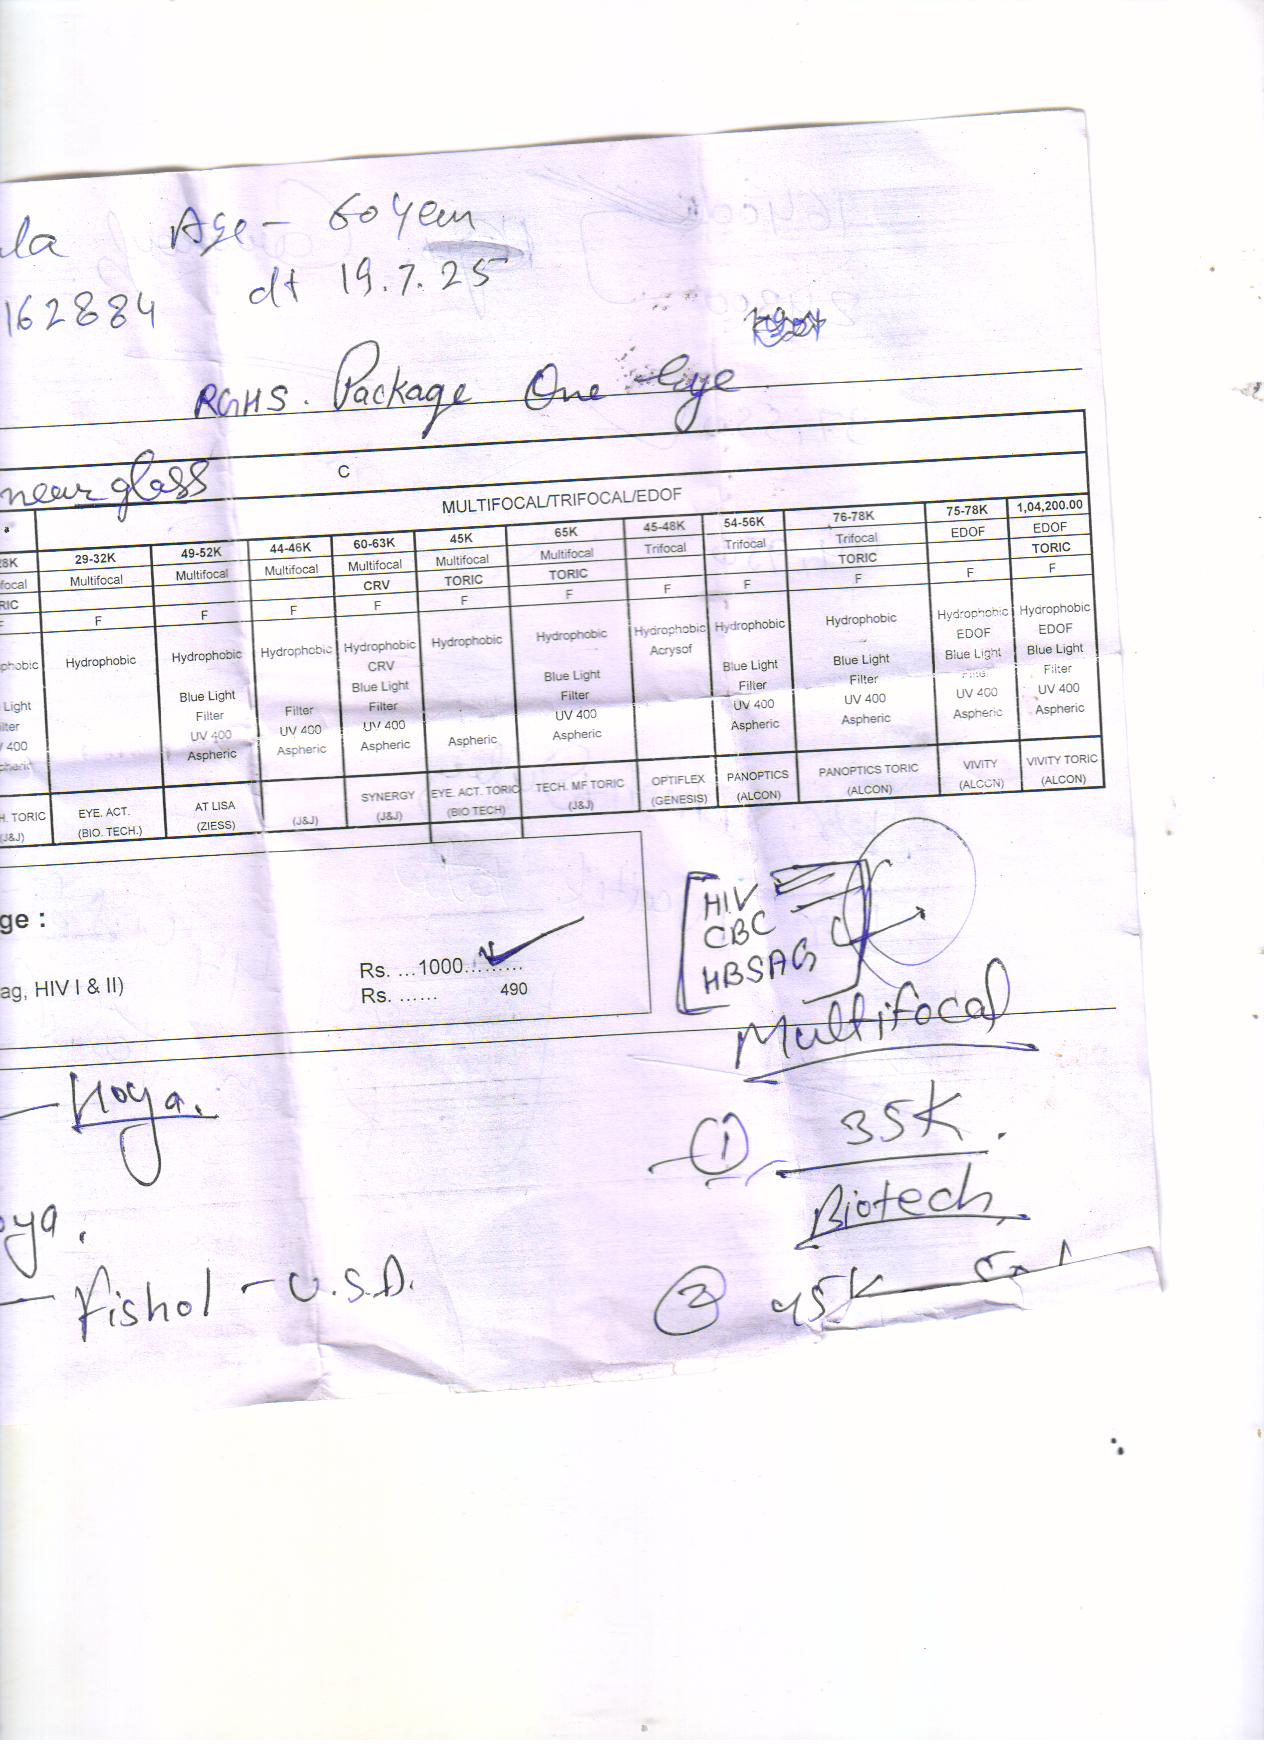 la Age - 60 year
162884 dt 19.7.25
RGHS. Package One Eye
near glass C
MULTIFOCAL/TRIFOCAL/EDOF
8K 29-32K 49-52K 44-46K 60-63K 45K 65K 45-48K 54-56K 76-78K 75-78K 1,04,200.00
focal Multifocal Multifocal Multifocal Multifocal Multifocal Multifocal Trifocal Trifocal Trifocal EDOF EDOF
RIC CRV TORIC TORIC TORIC TORIC
F F F F F F F F F F F F
phobic Hydrophobic Hydrophobic Hydrophobic Hydrophobic Hydrophobic Hydrophobic Hydrophobic Hydrophobic Hydrophobic Hydrophobic Hydrophobic
CRV Acrysof EDOF EDOF
Light Blue Light Blue Light Blue Light Blue Light Blue Light Blue Light Blue Light
ilter Filter Filter Filter Filter Filter Filter Filter Filter
V 400 UV 400 UV 400 UV 400 UV 400 UV 400 UV 400 UV 400 UV 400
pheric Aspheric Aspheric Aspheric Aspheric Aspheric Aspheric Aspheric Aspheric Aspheric
H. TORIC EYE. ACT. AT LISA SYNERGY EYE. ACT. TORIC TECH. MF TORIC OPTIFLEX PANOPTICS PANOPTICS TORIC VIVITY VIVITY TORIC
(J&J) (BIO. TECH.) (ZIESS) (J&J) (J&J) (BIO TECH) (J&J) (GENESIS) (ALCON) (ALCON) (ALCON) (ALCON)
ge :
Rs. ...1000.........
ag, HIV I & II) Rs. ...... 490
HIV
CBC
HBSAG
Multifocal
Hoya.
① 35K.
Biotech
oya.
- U.S.A.
② 45K